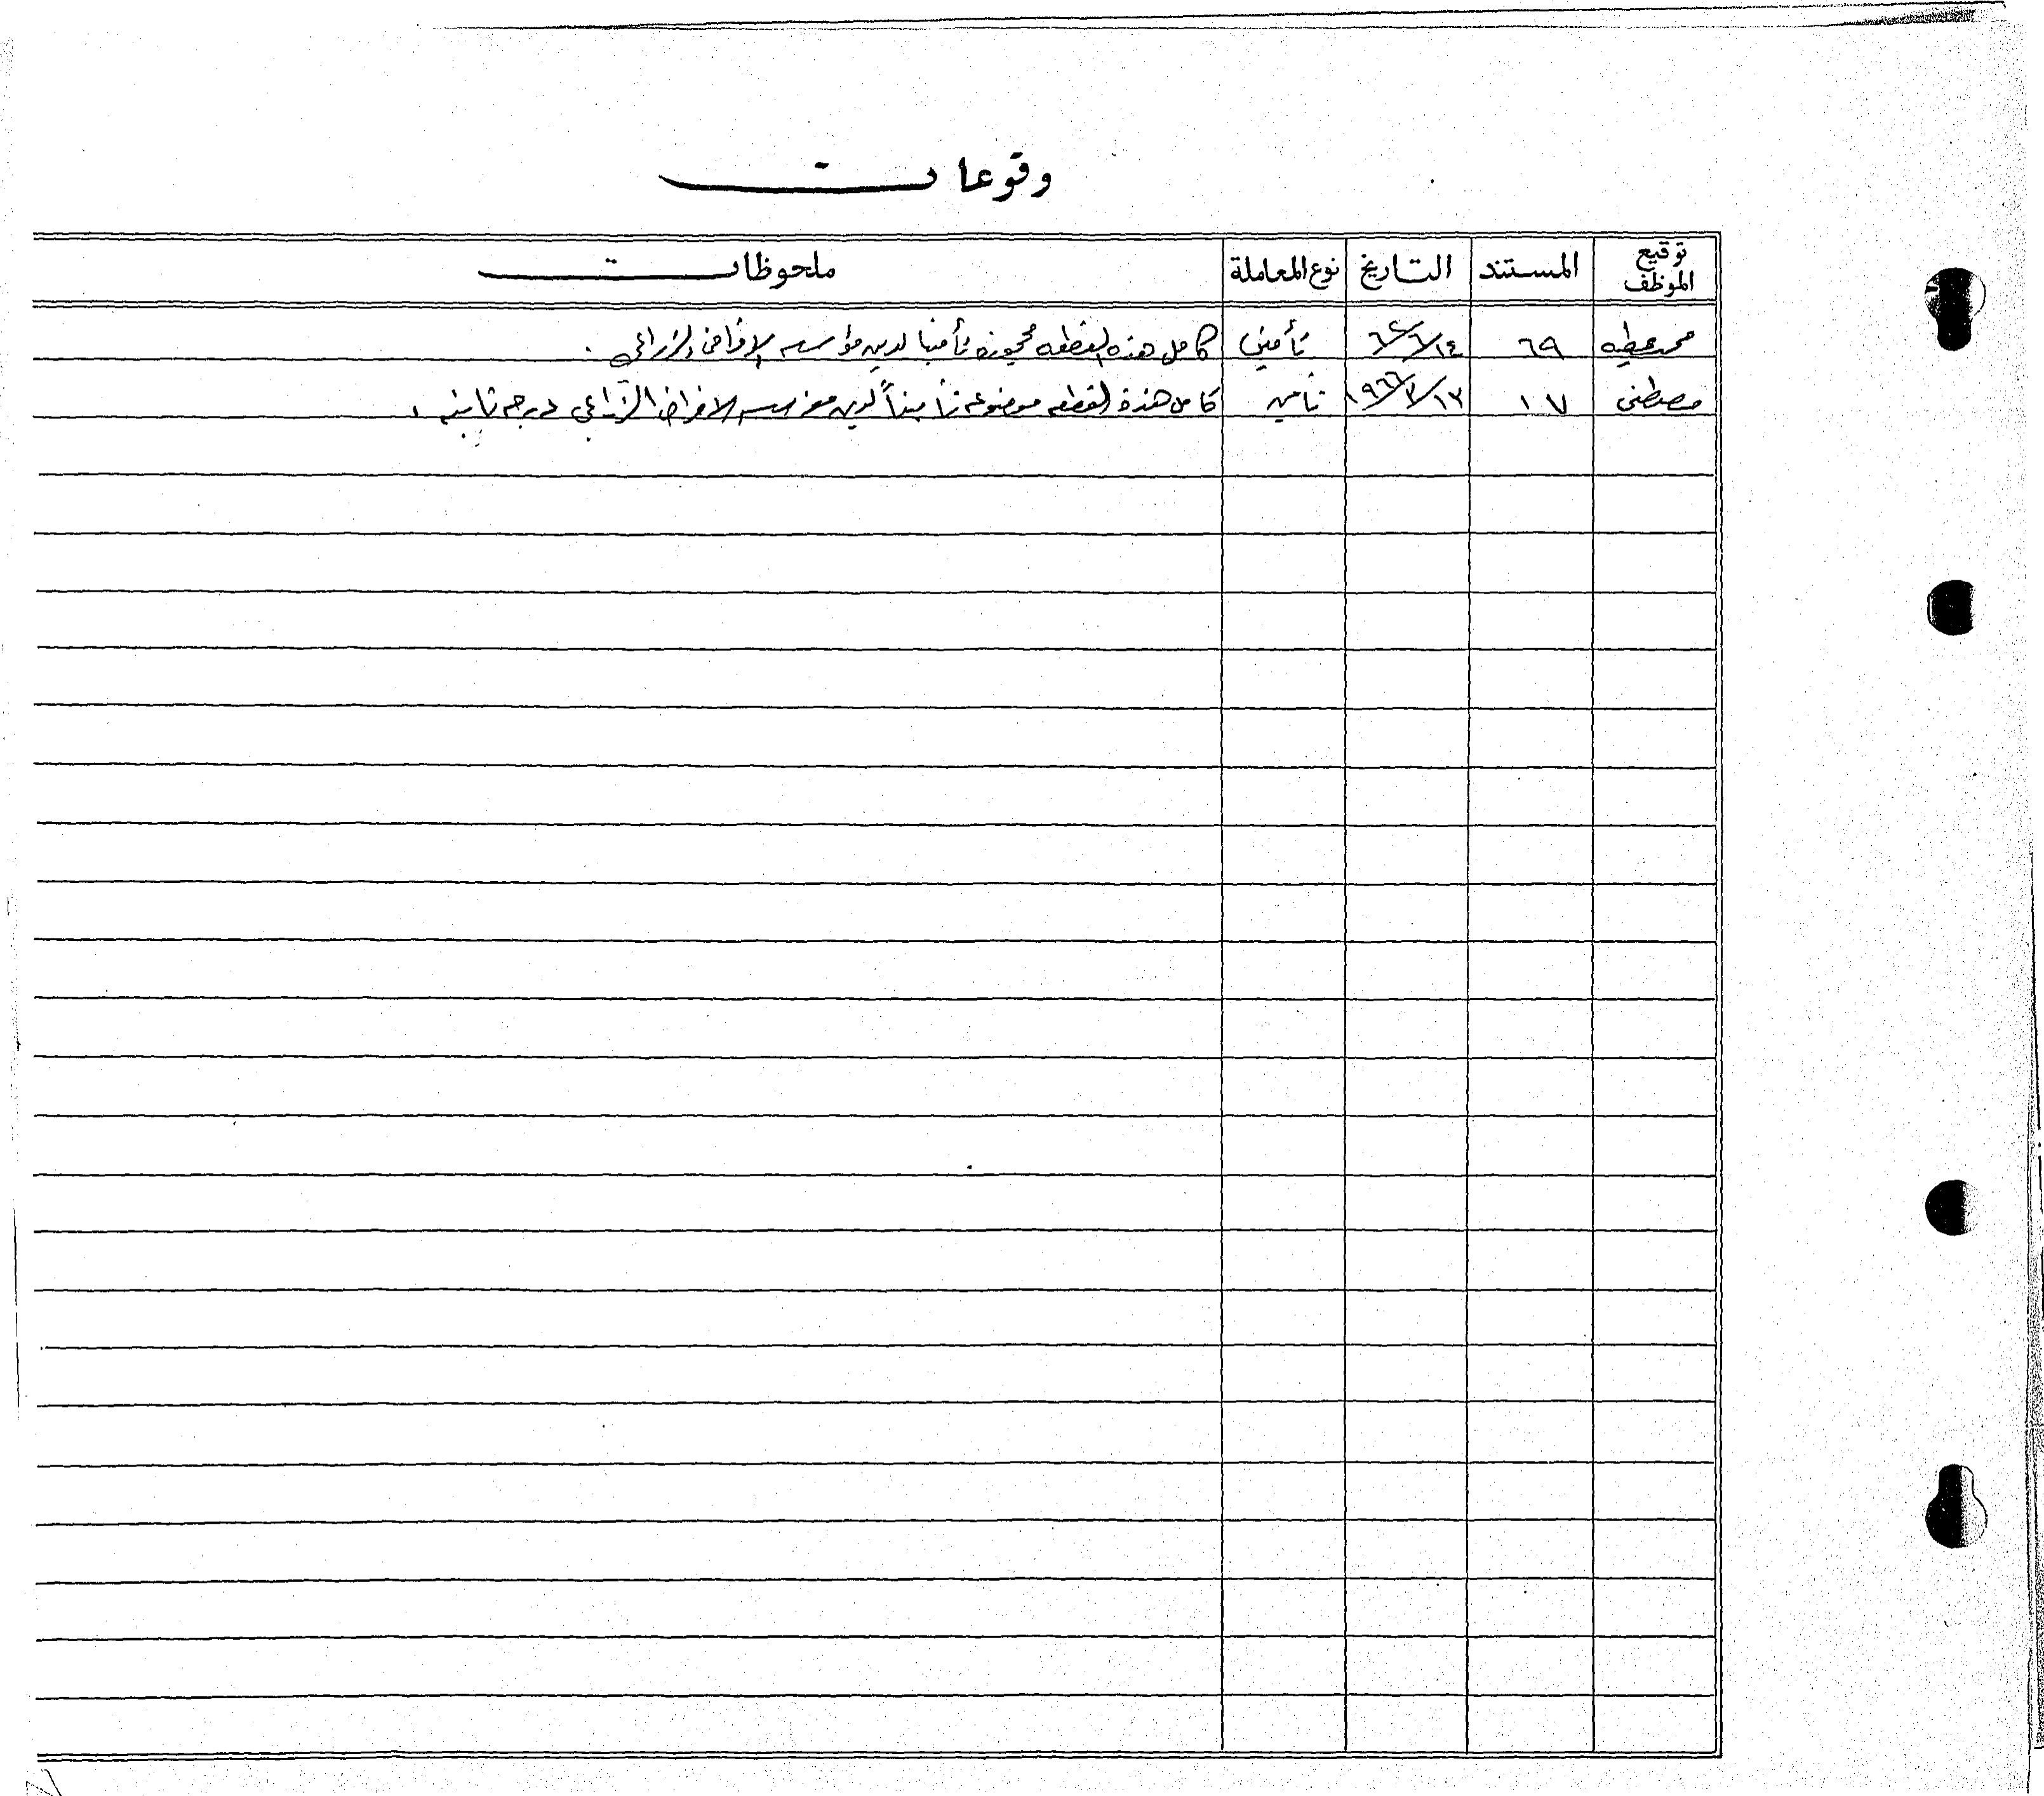 وقوعات
توقيع الموظف المستند التاريخ نوع المعاملة ملحوظات
محمد عطيه ٦٩ ١٤/٦/٦٤ تأمين كامل هذه القطعه محجوزه تأمينا لدين مؤسسه الاقراض الزراعي .
مصطفى ١٧ ١٣/٢/١٩٦٦ تأمين كامل هذه القطعه موضوعه تأميناً لدين مؤسسه الاقراض الزراعي درجه ثانيه .